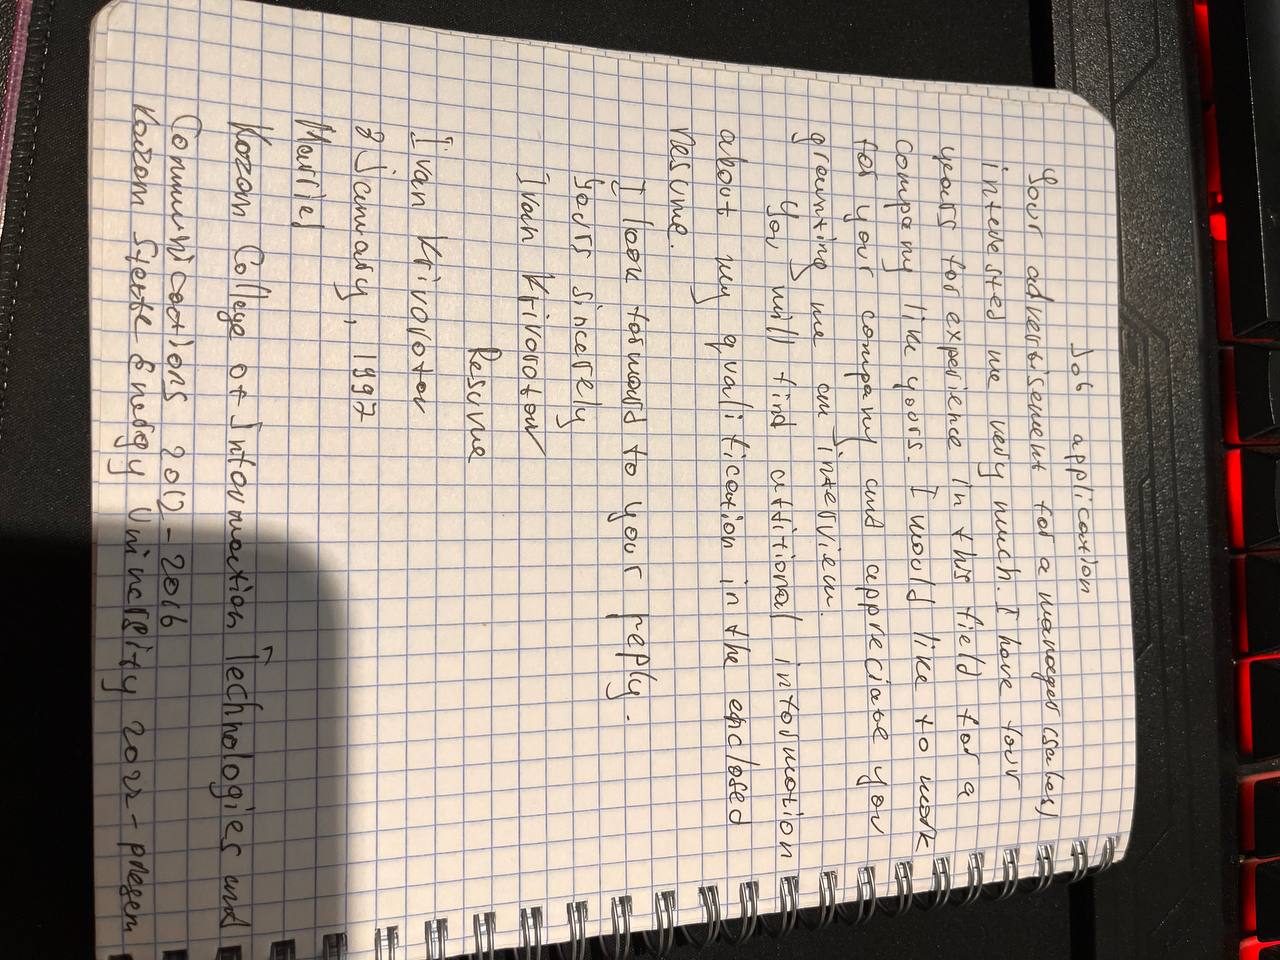 Job application
Your advertisement for a manager (sales)
interested me very much. I have four
years for experience in this field for a
company like yours. I would like to work
for your company and appreciate you
granting me an interview.
You will find attitional information
about my qualification in the enclosed
resume.
I look forward to your reply.
Yours sincerely
Ivan Krivorotov
Resume
Ivan Krivorotov
8 January, 1997
Married
Kazan College of Information Technologies and
Communications 2012-2016
Kazan State Energy University 2022-presen